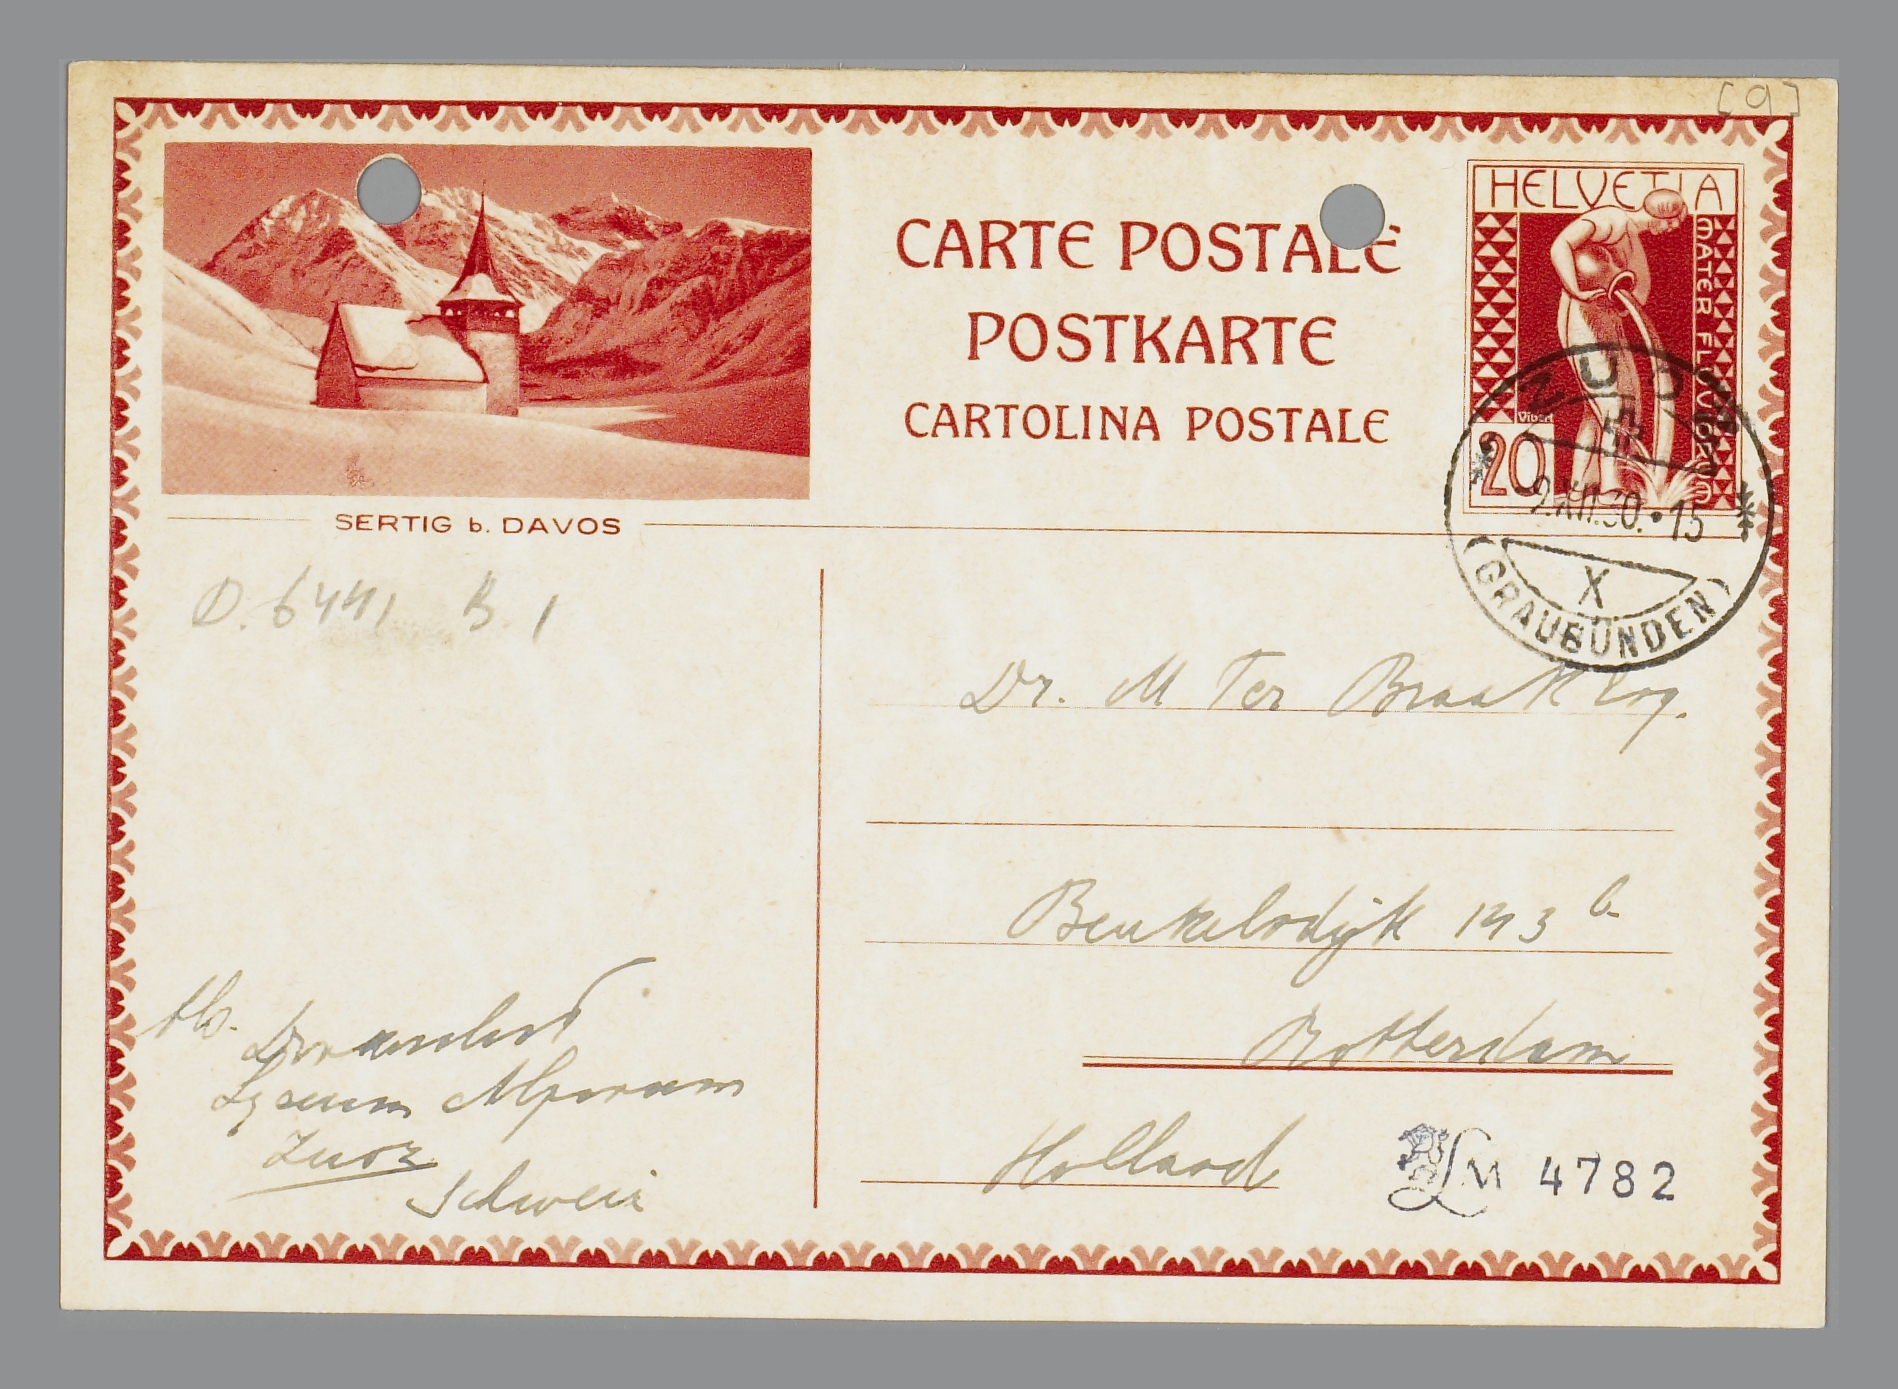 [9]
HELVETIA
MATER FLUVIORUM
Vibert
20
CARTE POSTALE
POSTKARTE
CARTOLINA POSTALE
ZUOZ
-9.XII.30.•15
X
(GRAUBÜNDEN)
SERTIG b. DAVOS
D. 6441 B. 1
Dr. M Ter Braak Esq.
Beukelsdijk 143 b.
Rotterdam
Holland
Ab.
Lyceum Alpinum
Zuoz
Schweiz
LM 4782